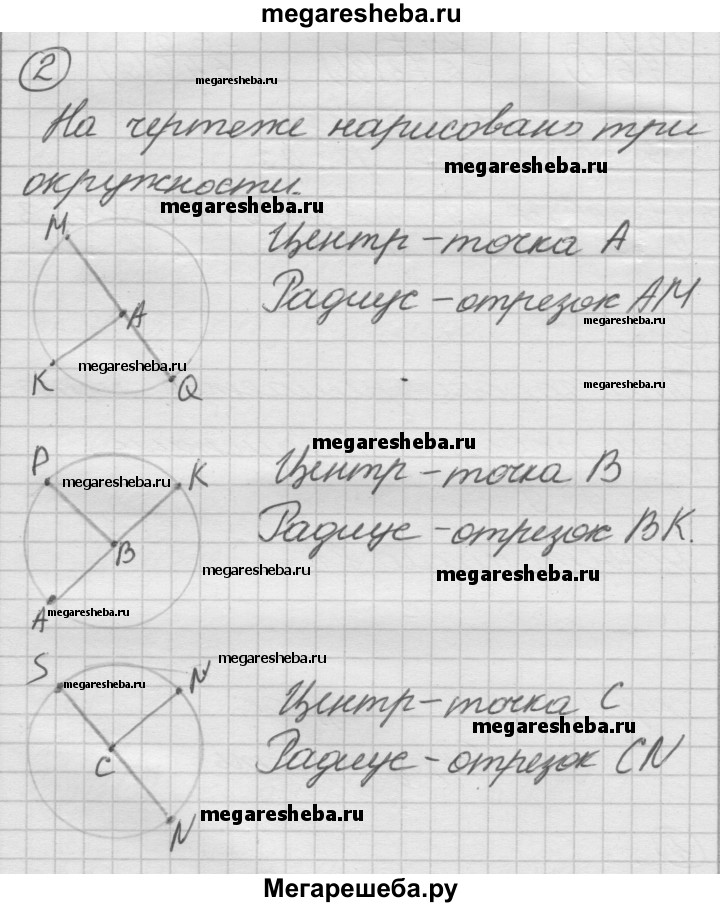 megaresheba.ru
2
megaresheba.ru
На чертеже нарисовано три
megaresheba.ru
окружности.
megaresheba.ru
M
Центр - точка А
A
Радиус - отрезок АМ
megaresheba.ru
megaresheba.ru
K
Q
megaresheba.ru
megaresheba.ru
P
megaresheba.ru
K
Центр - точка В
B
Радиус - отрезок ВК.
megaresheba.ru
megaresheba.ru
A
megaresheba.ru
megaresheba.ru
S
megaresheba.ru
N
Центр - точка С
megaresheba.ru
C
Радиус - отрезок CN
N
megaresheba.ru
Мегарешеба.ру